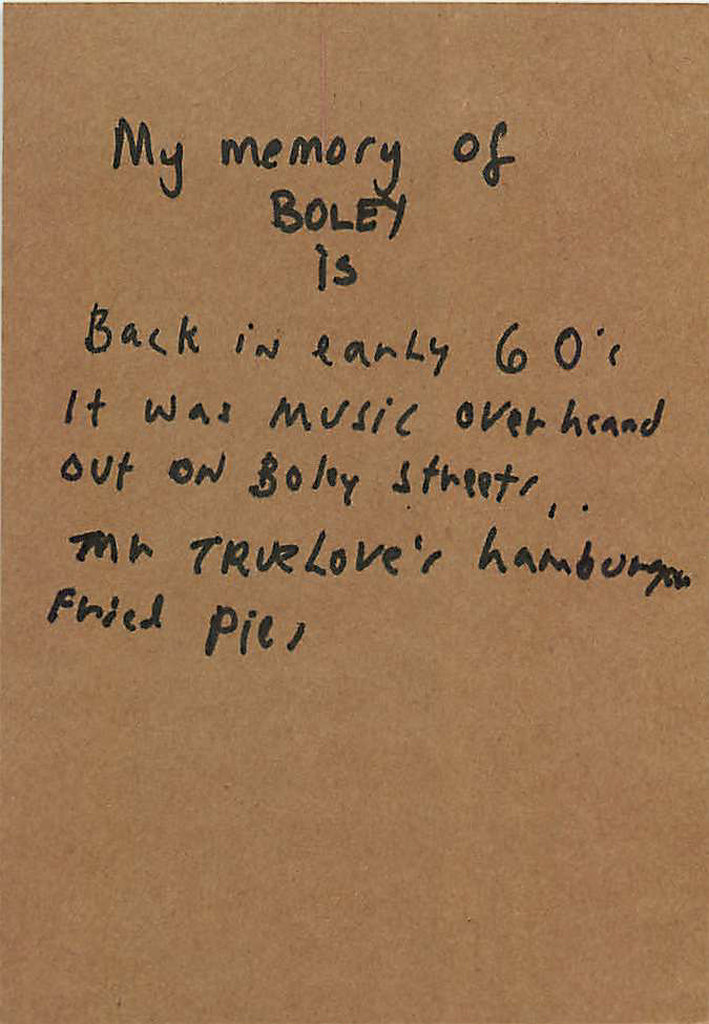 My memory of
BOLEY
is
Back in early 60's
It was music overheard
out on Boley streets,.
Mr TRUELOVE's hamburger
Fried pies